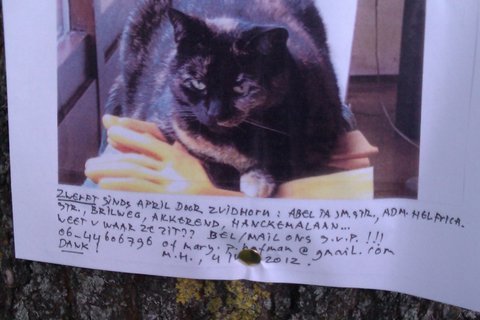 ZWERFT SINDS APRIL DOOR ZUIDHORN: ABEL TASMSTR., ADM. HELFRICH
STR., BRILWEG, AKKEREND, HANCKEMALAAN...
WEET U WAAR ZE ZIT?? BEL/MAIL ONS S.V.P. !!!
06-44606796 of mary. @gmail.com
DANK! M.H., 4 2012.